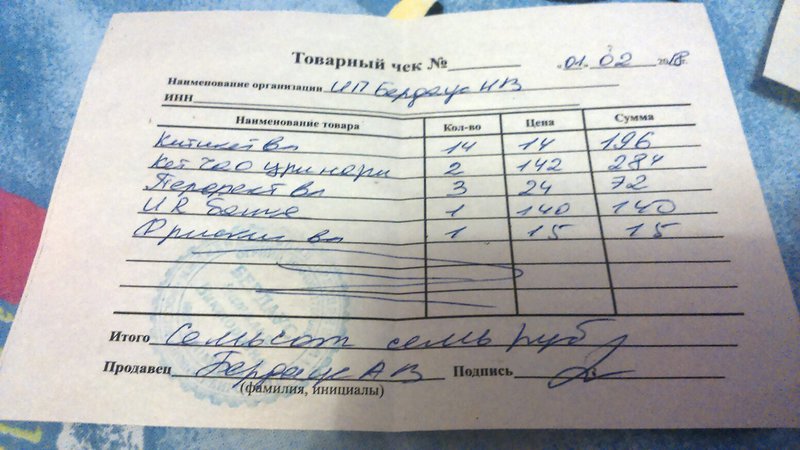 Товарный чек №
«01» 02 2018г.
Наименование организации ИП Бердаус Н В
ИНН
Наименование товара Кол-во Цена Сумма
Китикет вл 14 14 196
Кет чао уринари 2 142 284
Перфект вл 3 24 72
1 140 140
Фрискис вл 1 15 15
Итого Семьсот семь руб
Продавец Бердаус А В Подпись
(фамилия, инициалы)